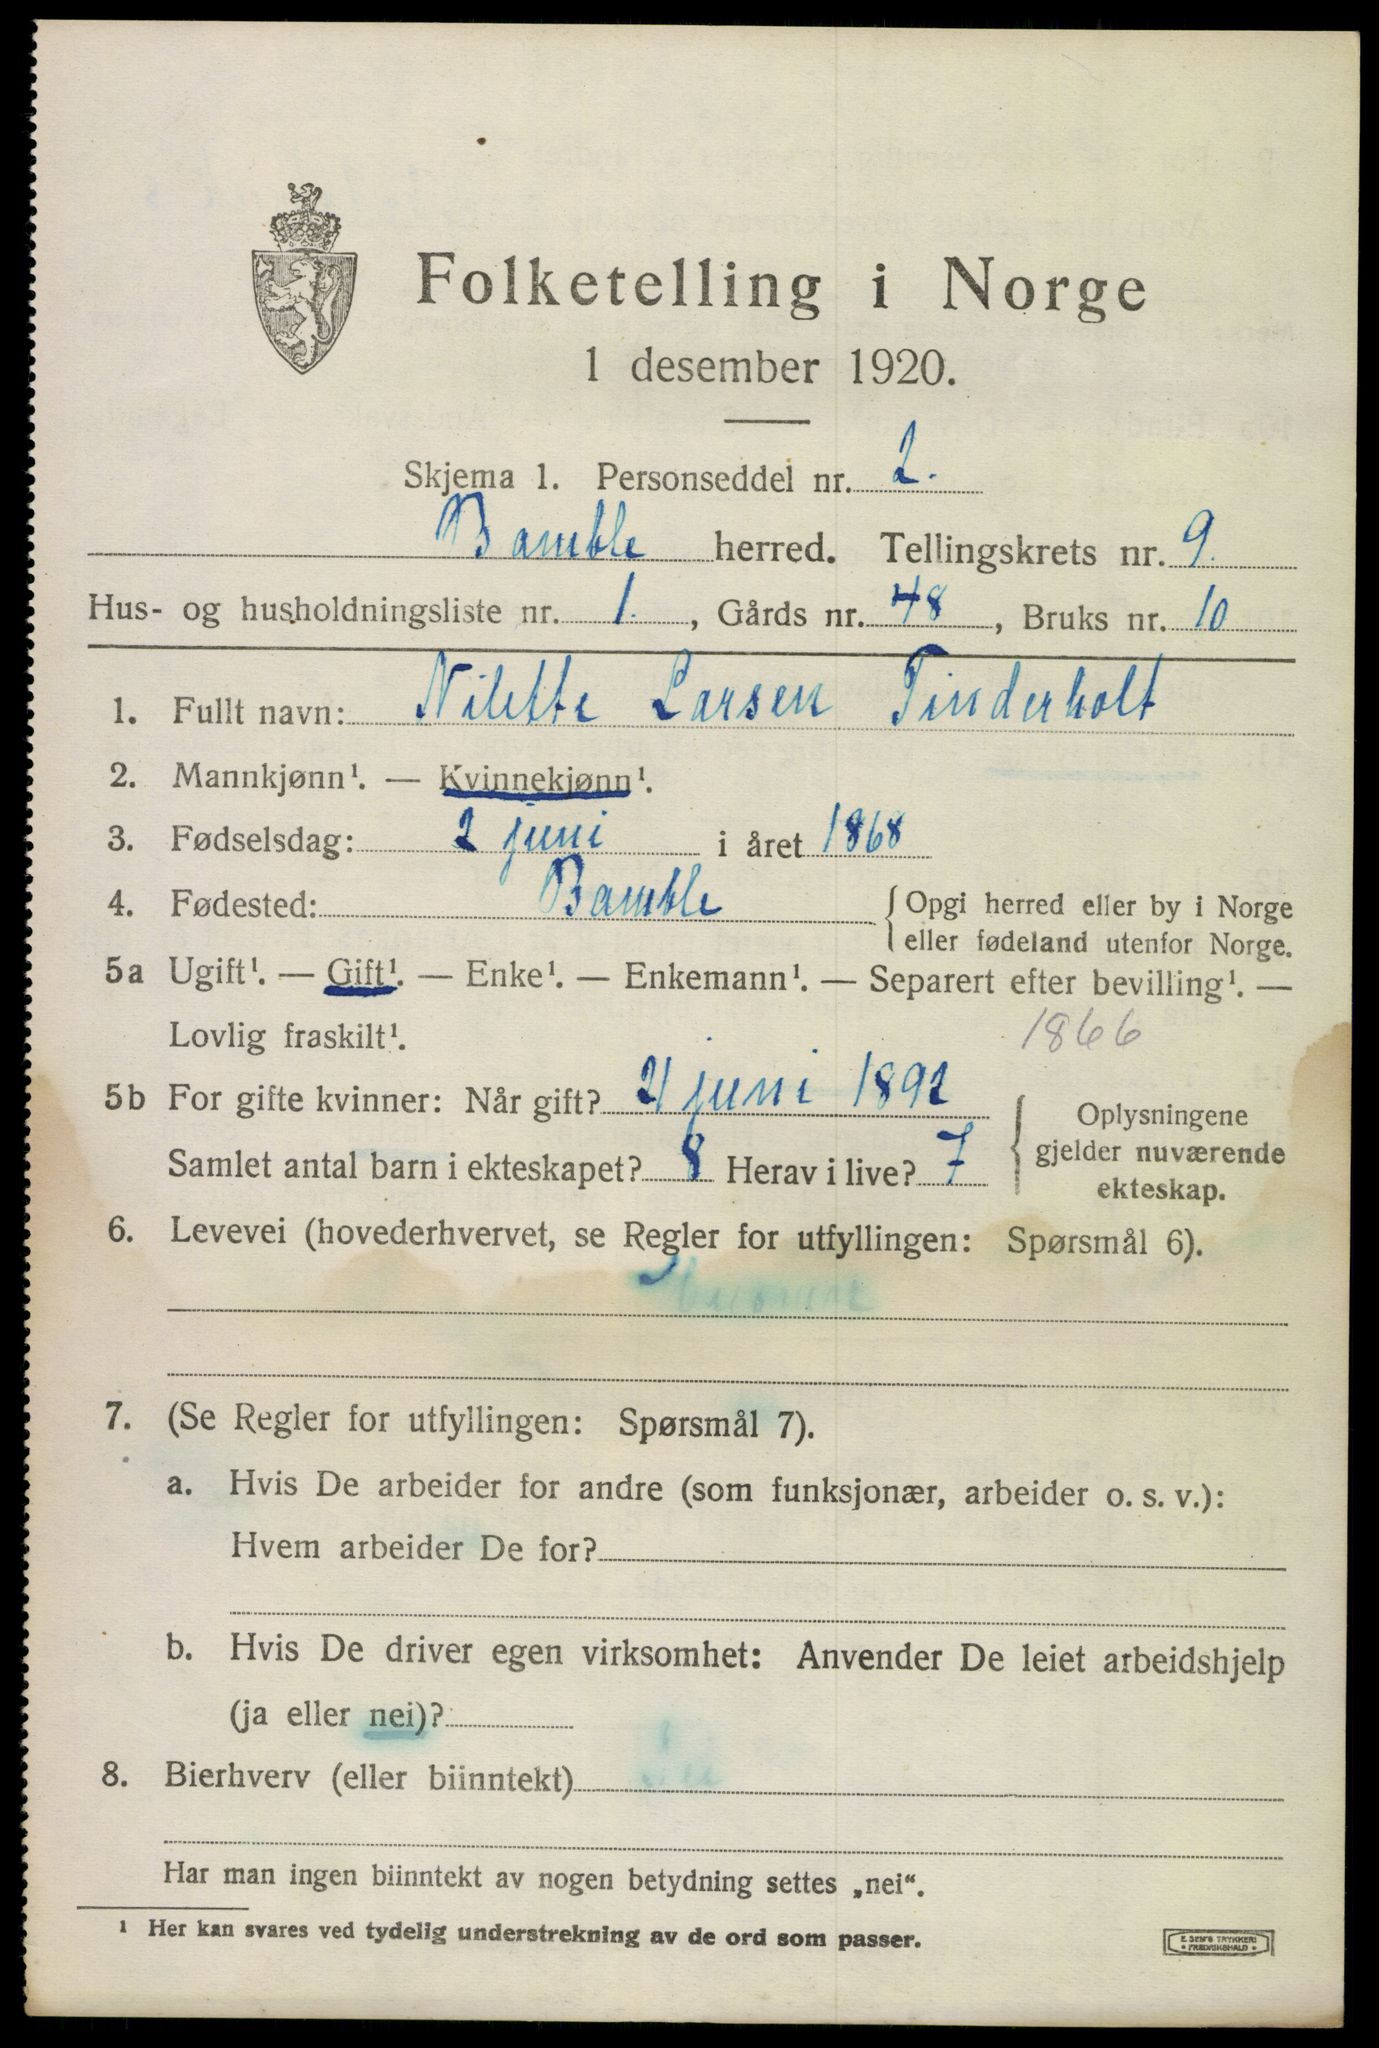 Folketelling i Norge
1 desember 1920.
Skjema 1. Personseddel nr. 2.
Bamble herred. Tellingskrets nr. 9.
Hus- og husholdningsliste nr. 1., Gårds nr. 48, Bruks nr. 10
1. Fullt navn: Nilette Larsen Tinderholt
2. Mannkjønn¹. — Kvinnekjønn¹.
3. Fødselsdag: 2 juni i året 1868
4. Fødested: Bamble {Opgi herred eller by i Norge
eller fødeland utenfor Norge.
5a Ugift¹. — Gift¹. — Enke¹. — Enkemann¹. — Separert efter bevilling¹. —
Lovlig fraskilt¹.
1866
5b For gifte kvinner: Når gift? 21 juni 1892
Samlet antal barn i ekteskapet? 8 Herav i live? 7
{Oplysningene
gjelder nuværende
ekteskap.
6. Levevei (hovederhvervet, se Regler for utfyllingen: Spørsmål 6).
7. (Se Regler for utfyllingen: Spørsmål 7).
a. Hvis De arbeider for andre (som funksjonær, arbeider o. s. v.):
Hvem arbeider De for?
b. Hvis De driver egen virksomhet: Anvender De leiet arbeidshjelp
(ja eller nei)?
8. Bierhverv (eller biinntekt)
Har man ingen biinntekt av nogen betydning settes „nei“.
¹ Her kan svares ved tydelig understrekning av de ord som passer.
E. SEM'S TRYKKERI
FREDRIKSHALD